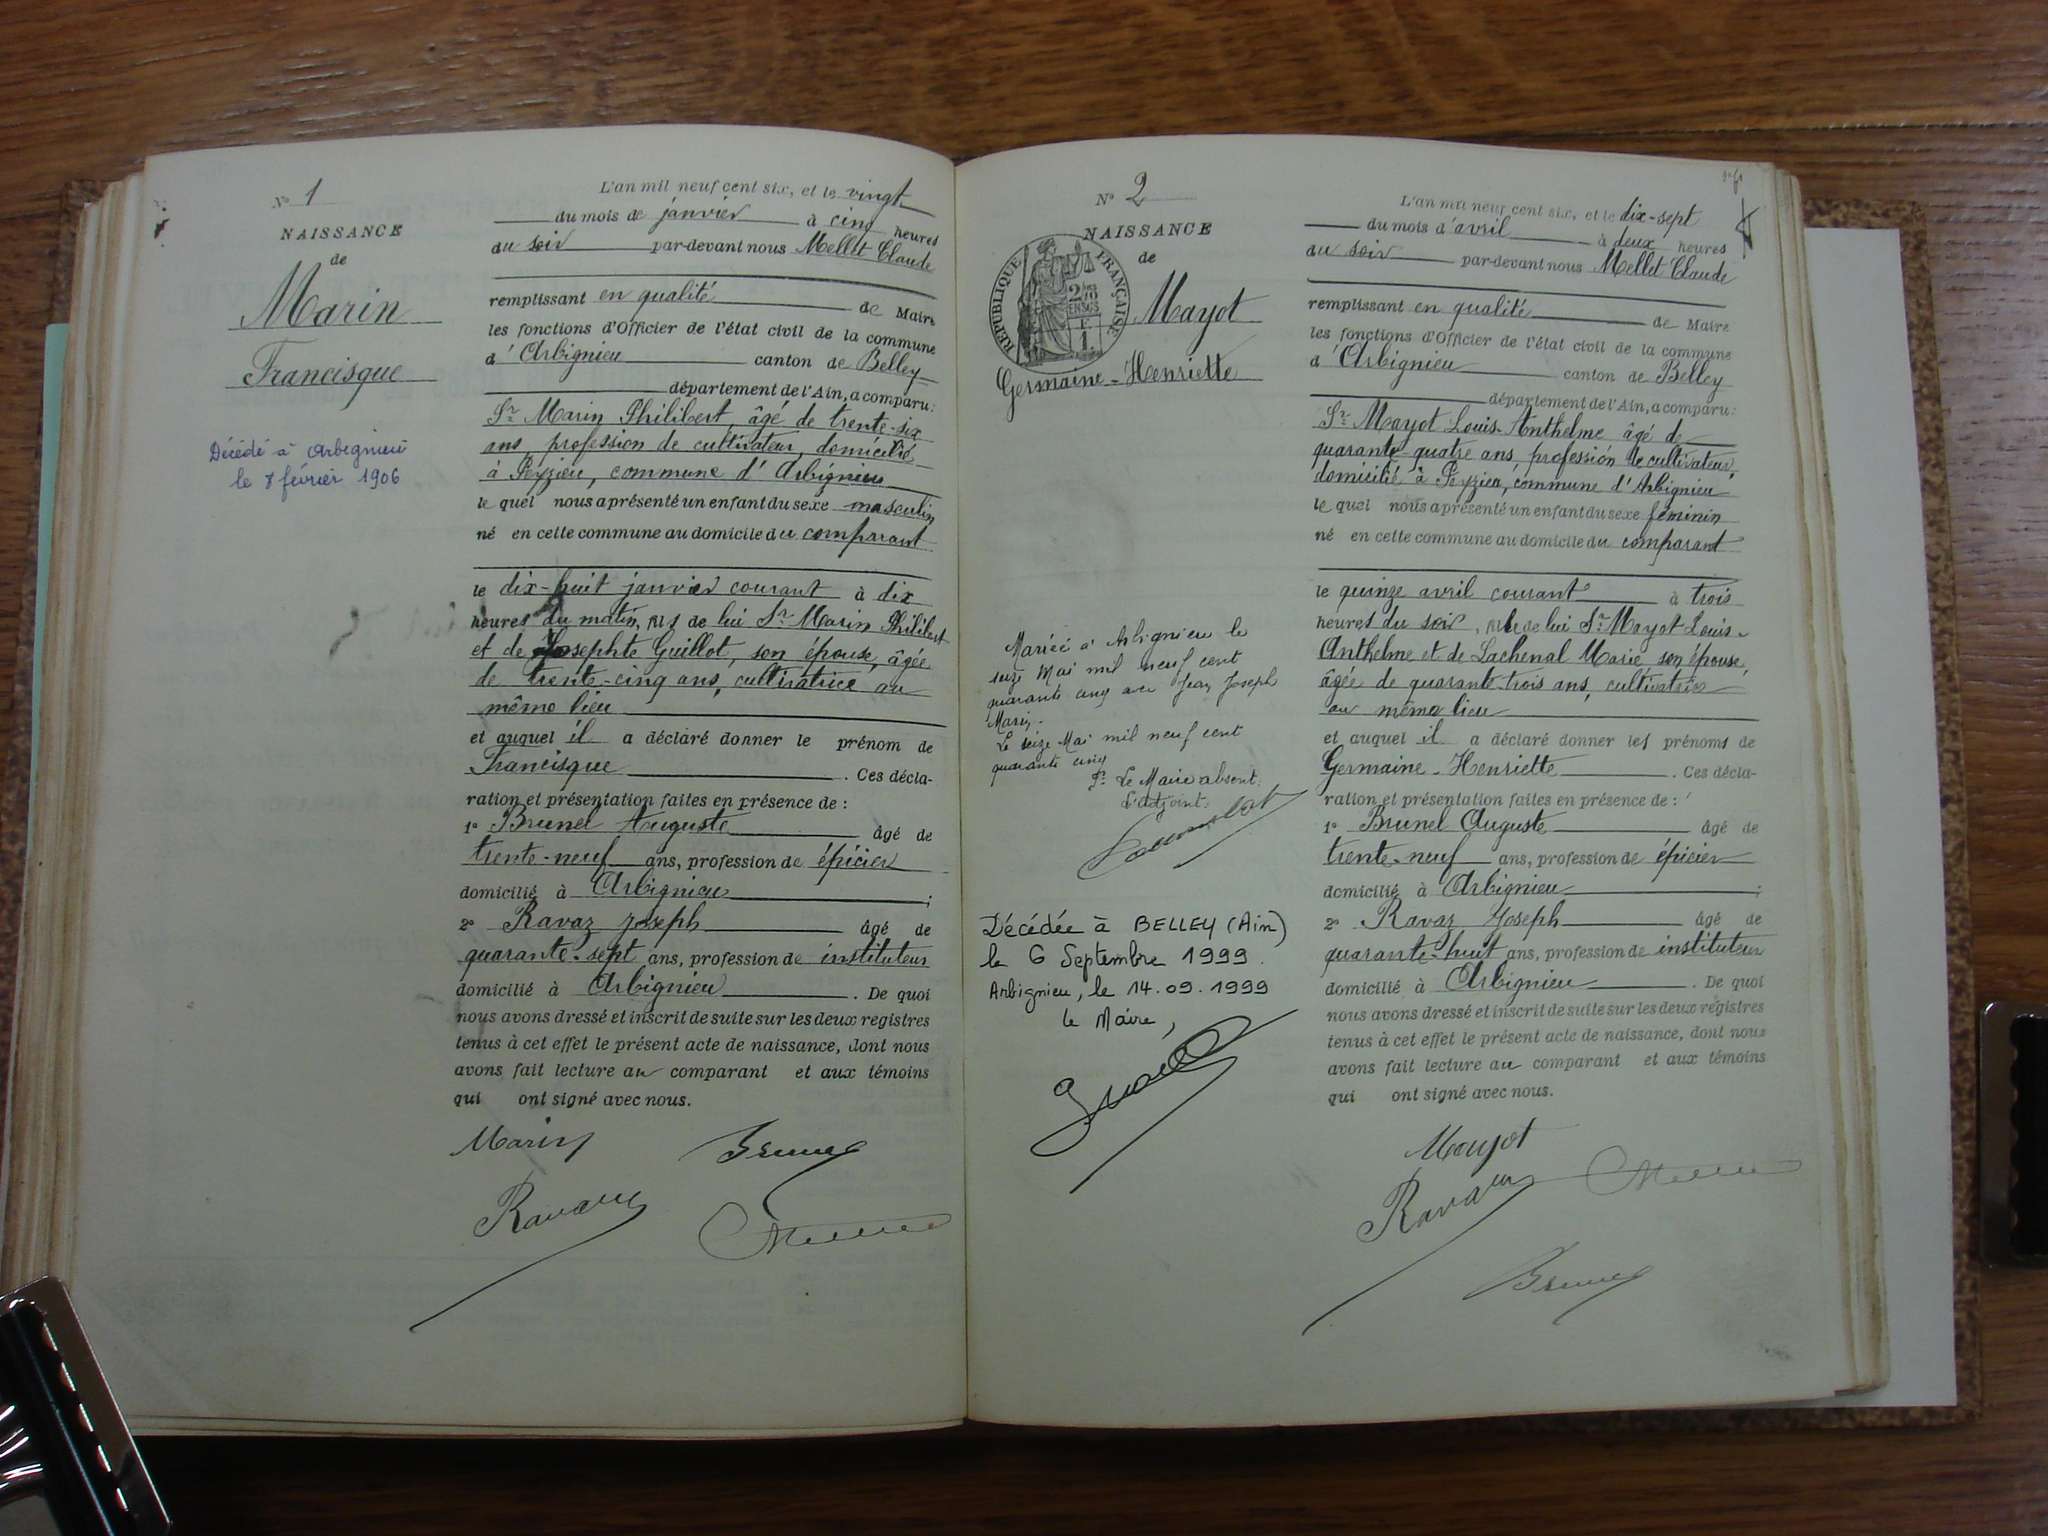 N° 1
NAISSANCE
de
Marin
Francisque
Décédé à Arbignieu
le 8 février 1906
L'an mil neuf cent six, et le vingt
du mois de janvier à cinq heures
du soir par-devant nous Mellet Claude
remplissant en qualité de Maire
les fonctions d'Officier de l'état civil de la commune
d'Arbignieu canton de Belley
département de l'Ain, a comparu:
Sr Marin Philibert, âgé de trente-six
ans, profession de cultivateur, domicilié
à Peyzieu, commune d'Arbignieu
le quel nous a présenté un enfant du sexe masculin
né en cette commune au domicile du comparant
le dix-huit janvier courant à dix
heures du matin, fils de lui Sr Marin Philibert
et de Josephte Guillot, son épouse, âgée
de trente-cinq ans, cultivatrice au
même lieu
et auquel il a déclaré donner le prénom de
Francisque. Ces décla-
ration et présentation faites en présence de :
1° Brunel Auguste âgé de
trente-neuf ans, profession de épicier
domicilié à Arbignieu ;
2° Ravaz Joseph âgé de
quarante-sept ans, profession de instituteur
domicilié à Arbignieu. De quoi
nous avons dressé et inscrit de suite sur les deux registres
tenus à cet effet le présent acte de naissance, dont nous
avons fait lecture au comparant et aux témoins
qui ont signé avec nous.
Marin Brunel
Ravaz Mellet
N° 2
NAISSANCE
de
RÉPUBLIQUE FRANÇAISE
Mayot
Germaine-Henriette
Mariée à Arbignieu le
seize Mai mil neuf cent
quarante cinq avec Jean Joseph
Marin.
Le seize Mai mil neuf cent
quarante cinq
Pr Le Maire absent
L'adjoint:
Décédée à BELLEY (Ain)
le 6 Septembre 1999.
Arbignieu, le 14.09.1999
le Maire,
L'an mil neuf cent six, et le dix-sept
du mois d'avril à deux heures
du soir par-devant nous Mellet Claude
remplissant en qualité de Maire
les fonctions d'Officier de l'état civil de la commune
d'Arbignieu canton de Belley
département de l'Ain, a comparu:
Sr Mayot Louis-Anthelme âgé de
quarante-quatre ans, profession de cultivateur,
domicilié à Peyzieu, commune d'Arbignieu
le quel nous a présenté un enfant du sexe féminin
né en cette commune au domicile du comparant
le quinze avril courant à trois
heures du soir, fille de lui Sr Mayot Louis-
Anthelme et de Lachenal Marie, son épouse,
âgée de quarante-trois ans, cultivatrice
au même lieu
et auquel il a déclaré donner les prénoms de
Germaine-Henriette. Ces décla-
ration et présentation faites en présence de :
1° Brunel Auguste âgé de
trente-neuf ans, profession de épicier
domicilié à Arbignieu ;
2° Ravaz Joseph âgé de
quarante-huit ans, profession de instituteur
domicilié à Arbignieu. De quoi
nous avons dressé et inscrit de suite sur les deux registres
tenus à cet effet le présent acte de naissance, dont nous
avons fait lecture au comparant et aux témoins
qui ont signé avec nous.
Mayot
Ravaz Mellet
Brunel